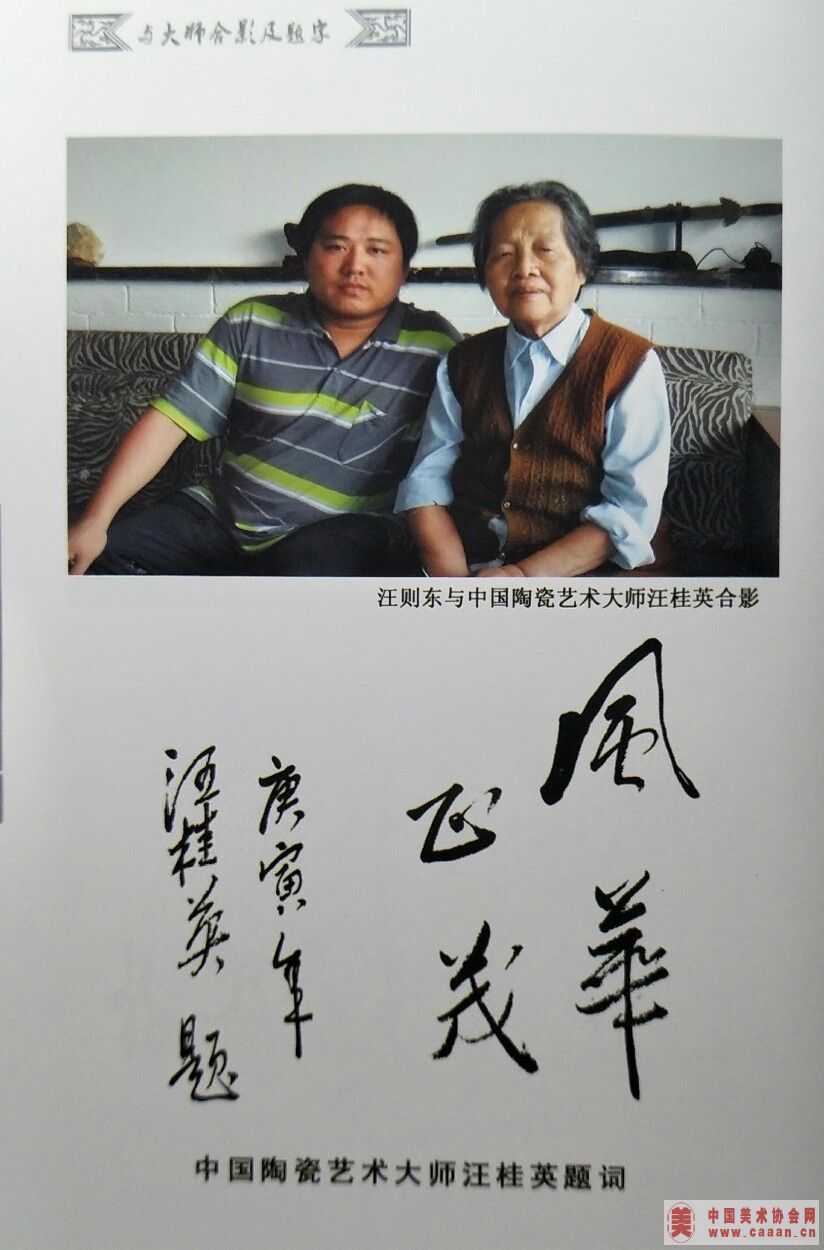 与大师合影及题字
汪则东与中国陶瓷艺术大师汪桂英合影
風華
正茂
庚寅年
汪桂英题
中国陶瓷艺术大师汪桂英题词
美 中国美术协会网
www.caaan.cn